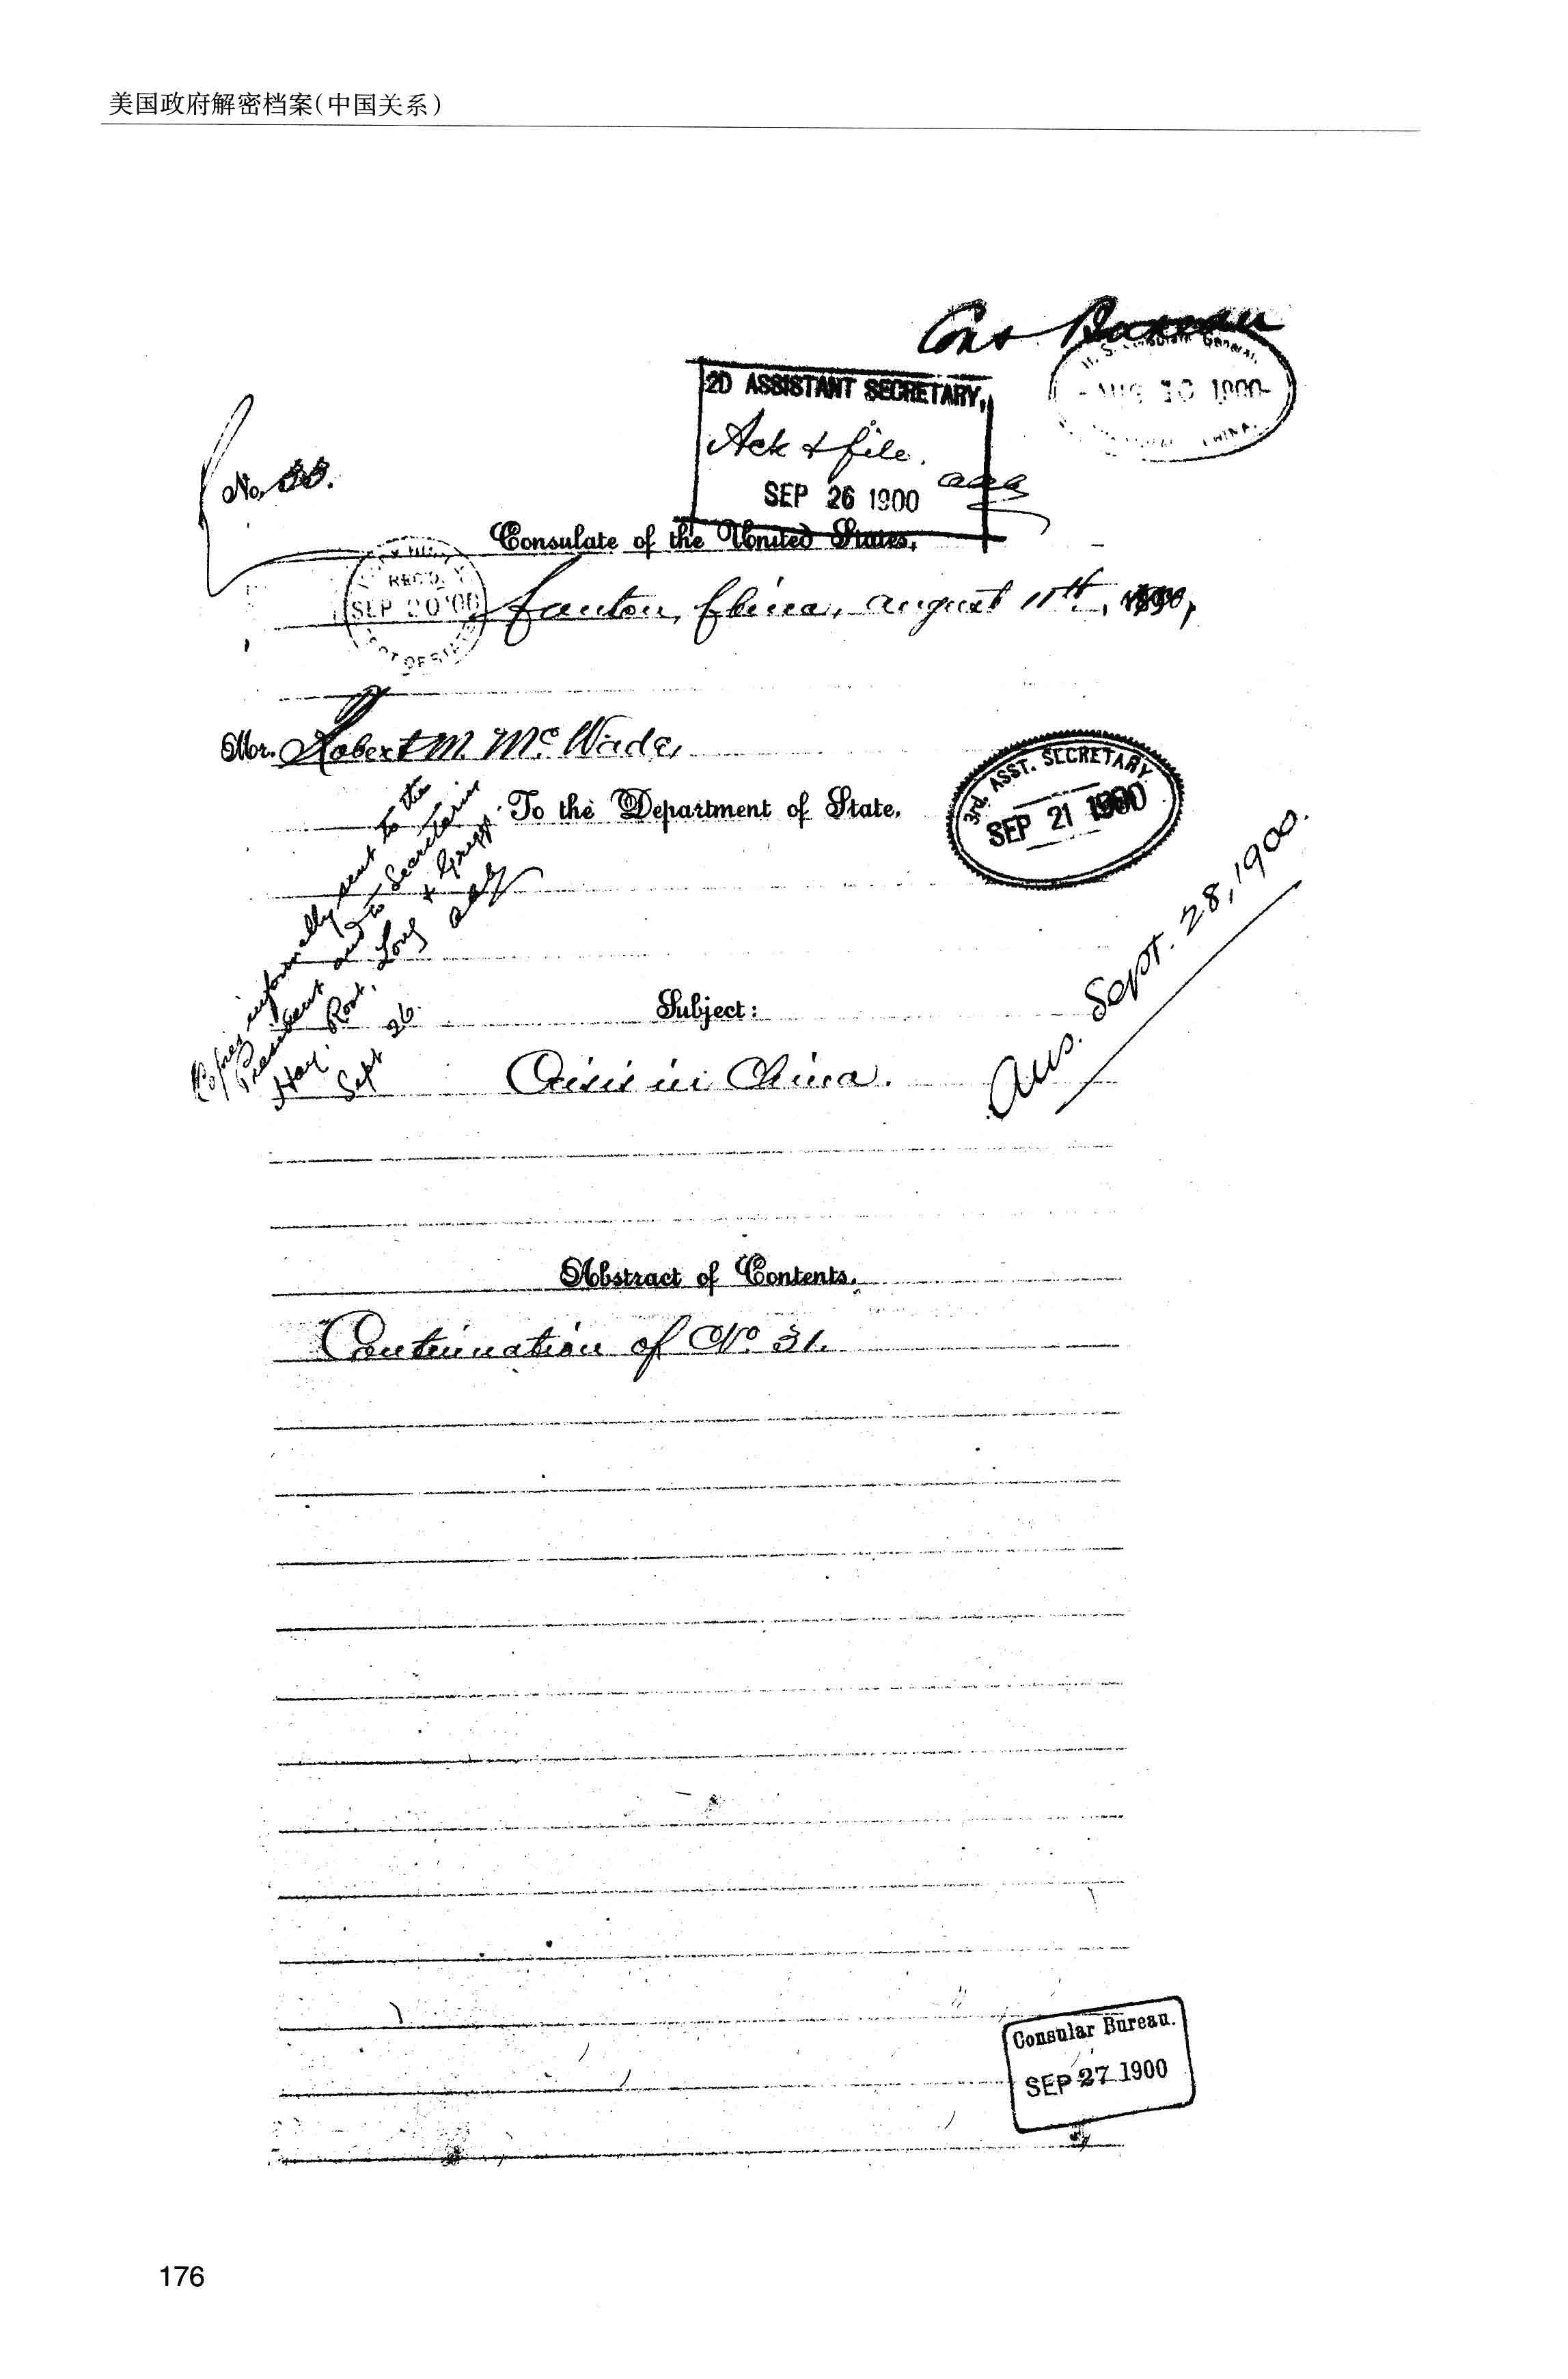 美国政府解密档案(中国关系)
Cons Bureau
U. S. Consulate General,
AUG 1900
CHINA.
2D ASSISTANT SECRETARY,
Ack & file.
SEP 26 1900
aaa
No. 33.
Consulate of the United States,
REC'D.
SEP 20 '00
DEPT OF STATE
Canton, China, August 11th, 1900,
Mr. Robert M. McWade,
To the Department of State.
3rd. ASST. SECRETARY
SEP 21 1900
Copies informally sent to the
President and to Secretaries
Hay, Root, Long & Griggs.
Sept 26. aaa
Ans. Sept. 28, 1900.
Subject:
Crisis in China.
Abstract of Contents.
Continuation of No. 31.
Consular Bureau.
SEP 27 1900
176